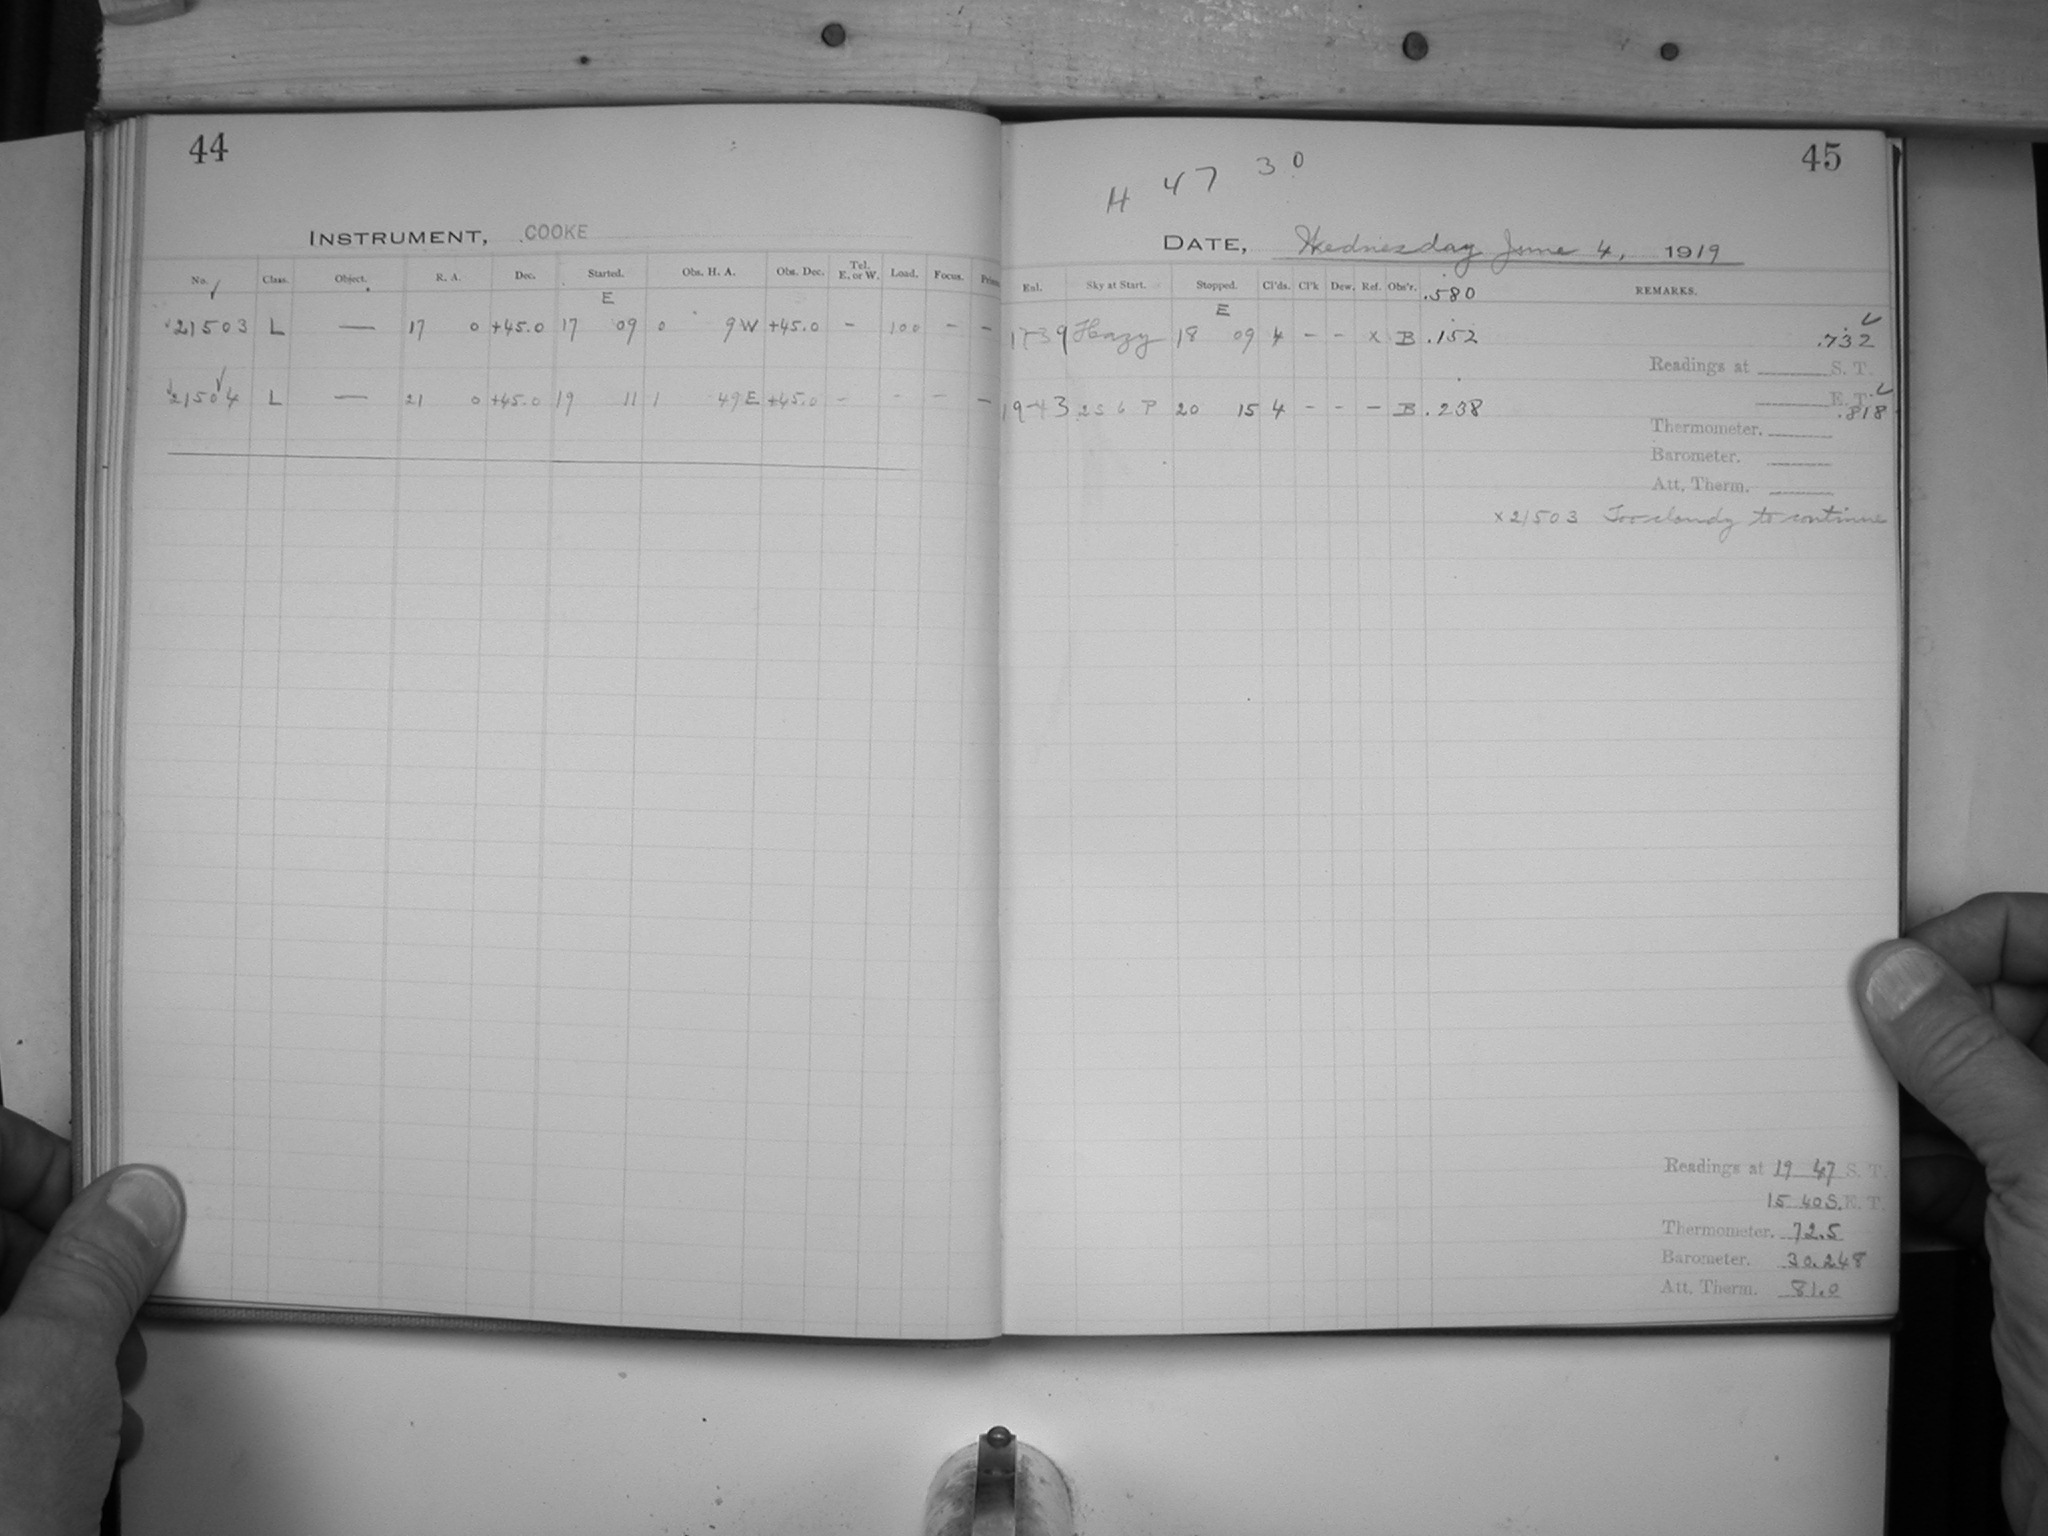 44
INSTRUMENT, COOKE
No. Class. Object. R. A. Dec. Started. Obs. H. A. Obs. Dec. Tel. E. or W. Load. Focus.
E
21503 L — 17 0 +45.0 17 09 0 9 W +45.0 - 100 - -
21504 L — 21 0 +45.0 19 11 1 49 E +45.0 - - - -
45
H 47 30
DATE, Wednesday June 4, 1919
Enl. Sky at Start. Stopped. Cl'ds. Cl'k Dew. Ref. Obs'r. .580 REMARKS.
E
17 39 Hazy 18 09 4 - - x B .152 .732
Readings at S. T.
19 43 20 15 4 - - - B .238 .818
E. T.
Thermometer.
Barometer.
Att. Therm.
x 21503 Too cloudy to continue
Readings at 19 47 S. T.
15 40 S. E. T.
Thermometer. 72.5
Barometer. 30.248
Att. Therm. 81.0